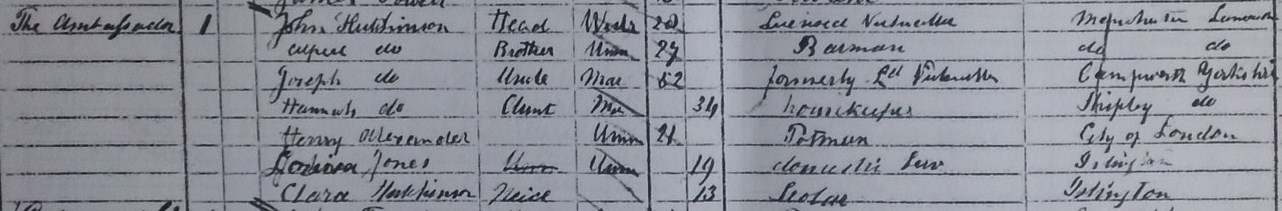 The Ambassador 1 John Hutchinson Head Widr Licensed Victualler Manchester
Alfred do Brother Unm 27 Barman do do
Joseph do Uncle Mar 52 formerly Ld Victualler Yorkshire
Hannah do Aunt Mar 34 housekeeper Shipley do
Henry Alexander Unm 21 Potman City of London
Jones Unm Unm 19 domestic Serv Islington
Clara Hutchinson Neice 13 Scolar Islington